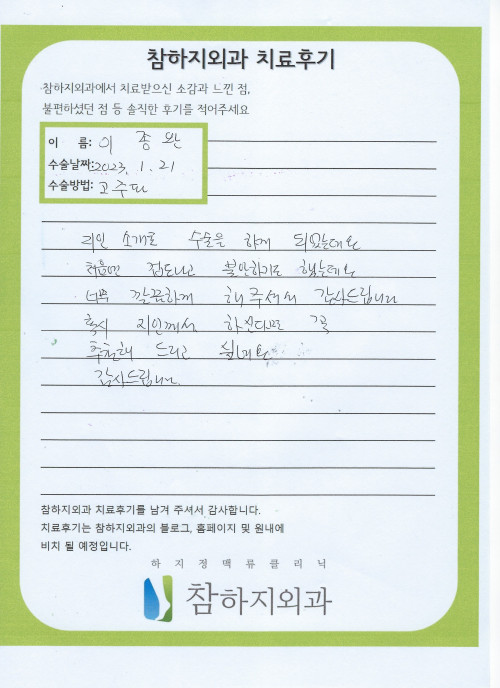 참하지외과 치료후기
참하지외과에서 치료받으신 소감과 느낀 점,
불편하셨던 점 등 솔직한 후기를 적어주세요
이 름: 이 종 완
수술날짜: 2023. 1. 21
수술방법: 고주파
지인 소개로 수술을 하게 되었는데요
처음엔 겁도나고 불안하기도 했는데요
너무 깔끔하게 해주셔서 감사드립니다
혹시 지인께서 하신다면 꼭
추천해 드리고 싶네요
감사드립니다.
참하지외과 치료후기를 남겨 주셔서 감사합니다.
치료후기는 참하지외과의 블로그, 홈페이지 및 원내에
비치 될 예정입니다.
하지정맥류클리닉
참하지외과